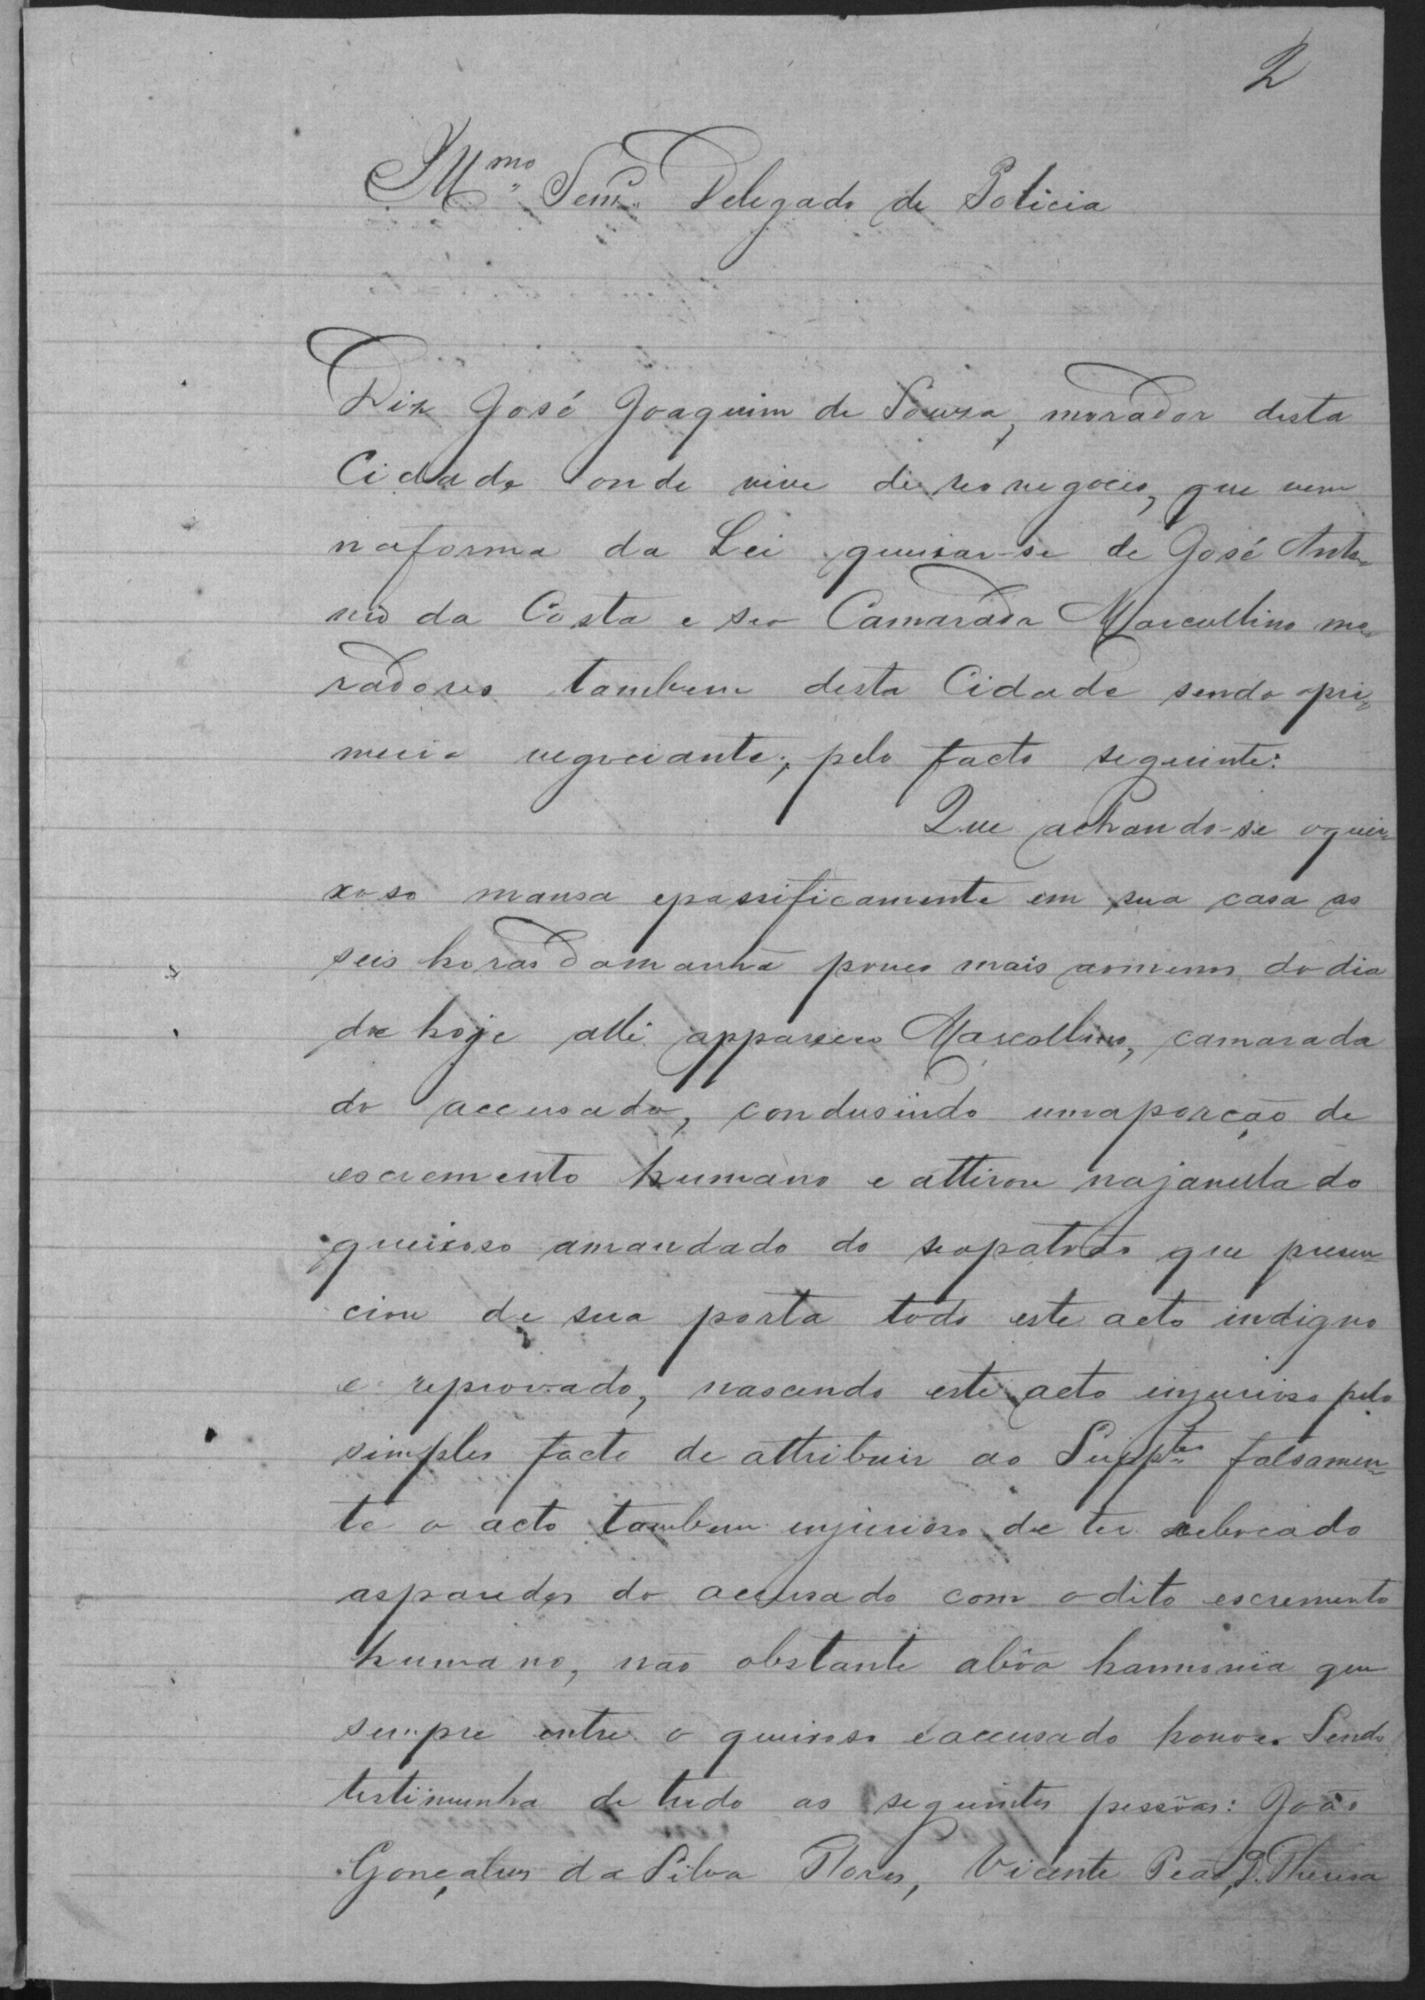 2
Illmo Senr. Delegado de Policia
Diz José Joaquim de Souza, morador desta
Cidade onde vive de seo negocio, que vem
naforma da Lei queixar-se de José Anto-
nio da Costa e seo Camarada Marcollino mo-
radores tambem desta Cidade sendo opri-
meiro negociante, pelo facto seguinte:
Que achando-se oquei-
xoso mansa epassificamente em sua casa as
seis horas damanhã pouco mais aomenos do dia
de hoje alli appareceo Marcollino, camarada
do accusado, condusindo umaporção de
escremento humano e attirou najanella do
queixoso amandado do seopatrão que presen-
ciou de sua porta todo este acto indigno
e reprovado, nascendo este acto injurioso pelo
simples facto de attribuir ao Suppte falsamen-
te o acto tambem injurioso de ter rebocado
asparedes do accusado com odito escremento
humano, não obstante abôa harmonia que
sempre entre o queixoso eaccusado houve. Sendo
testimunha de tudo as seguintes pessôas: João
Gonçalves da Silva Flores, Vicente Peão, D. Theresa